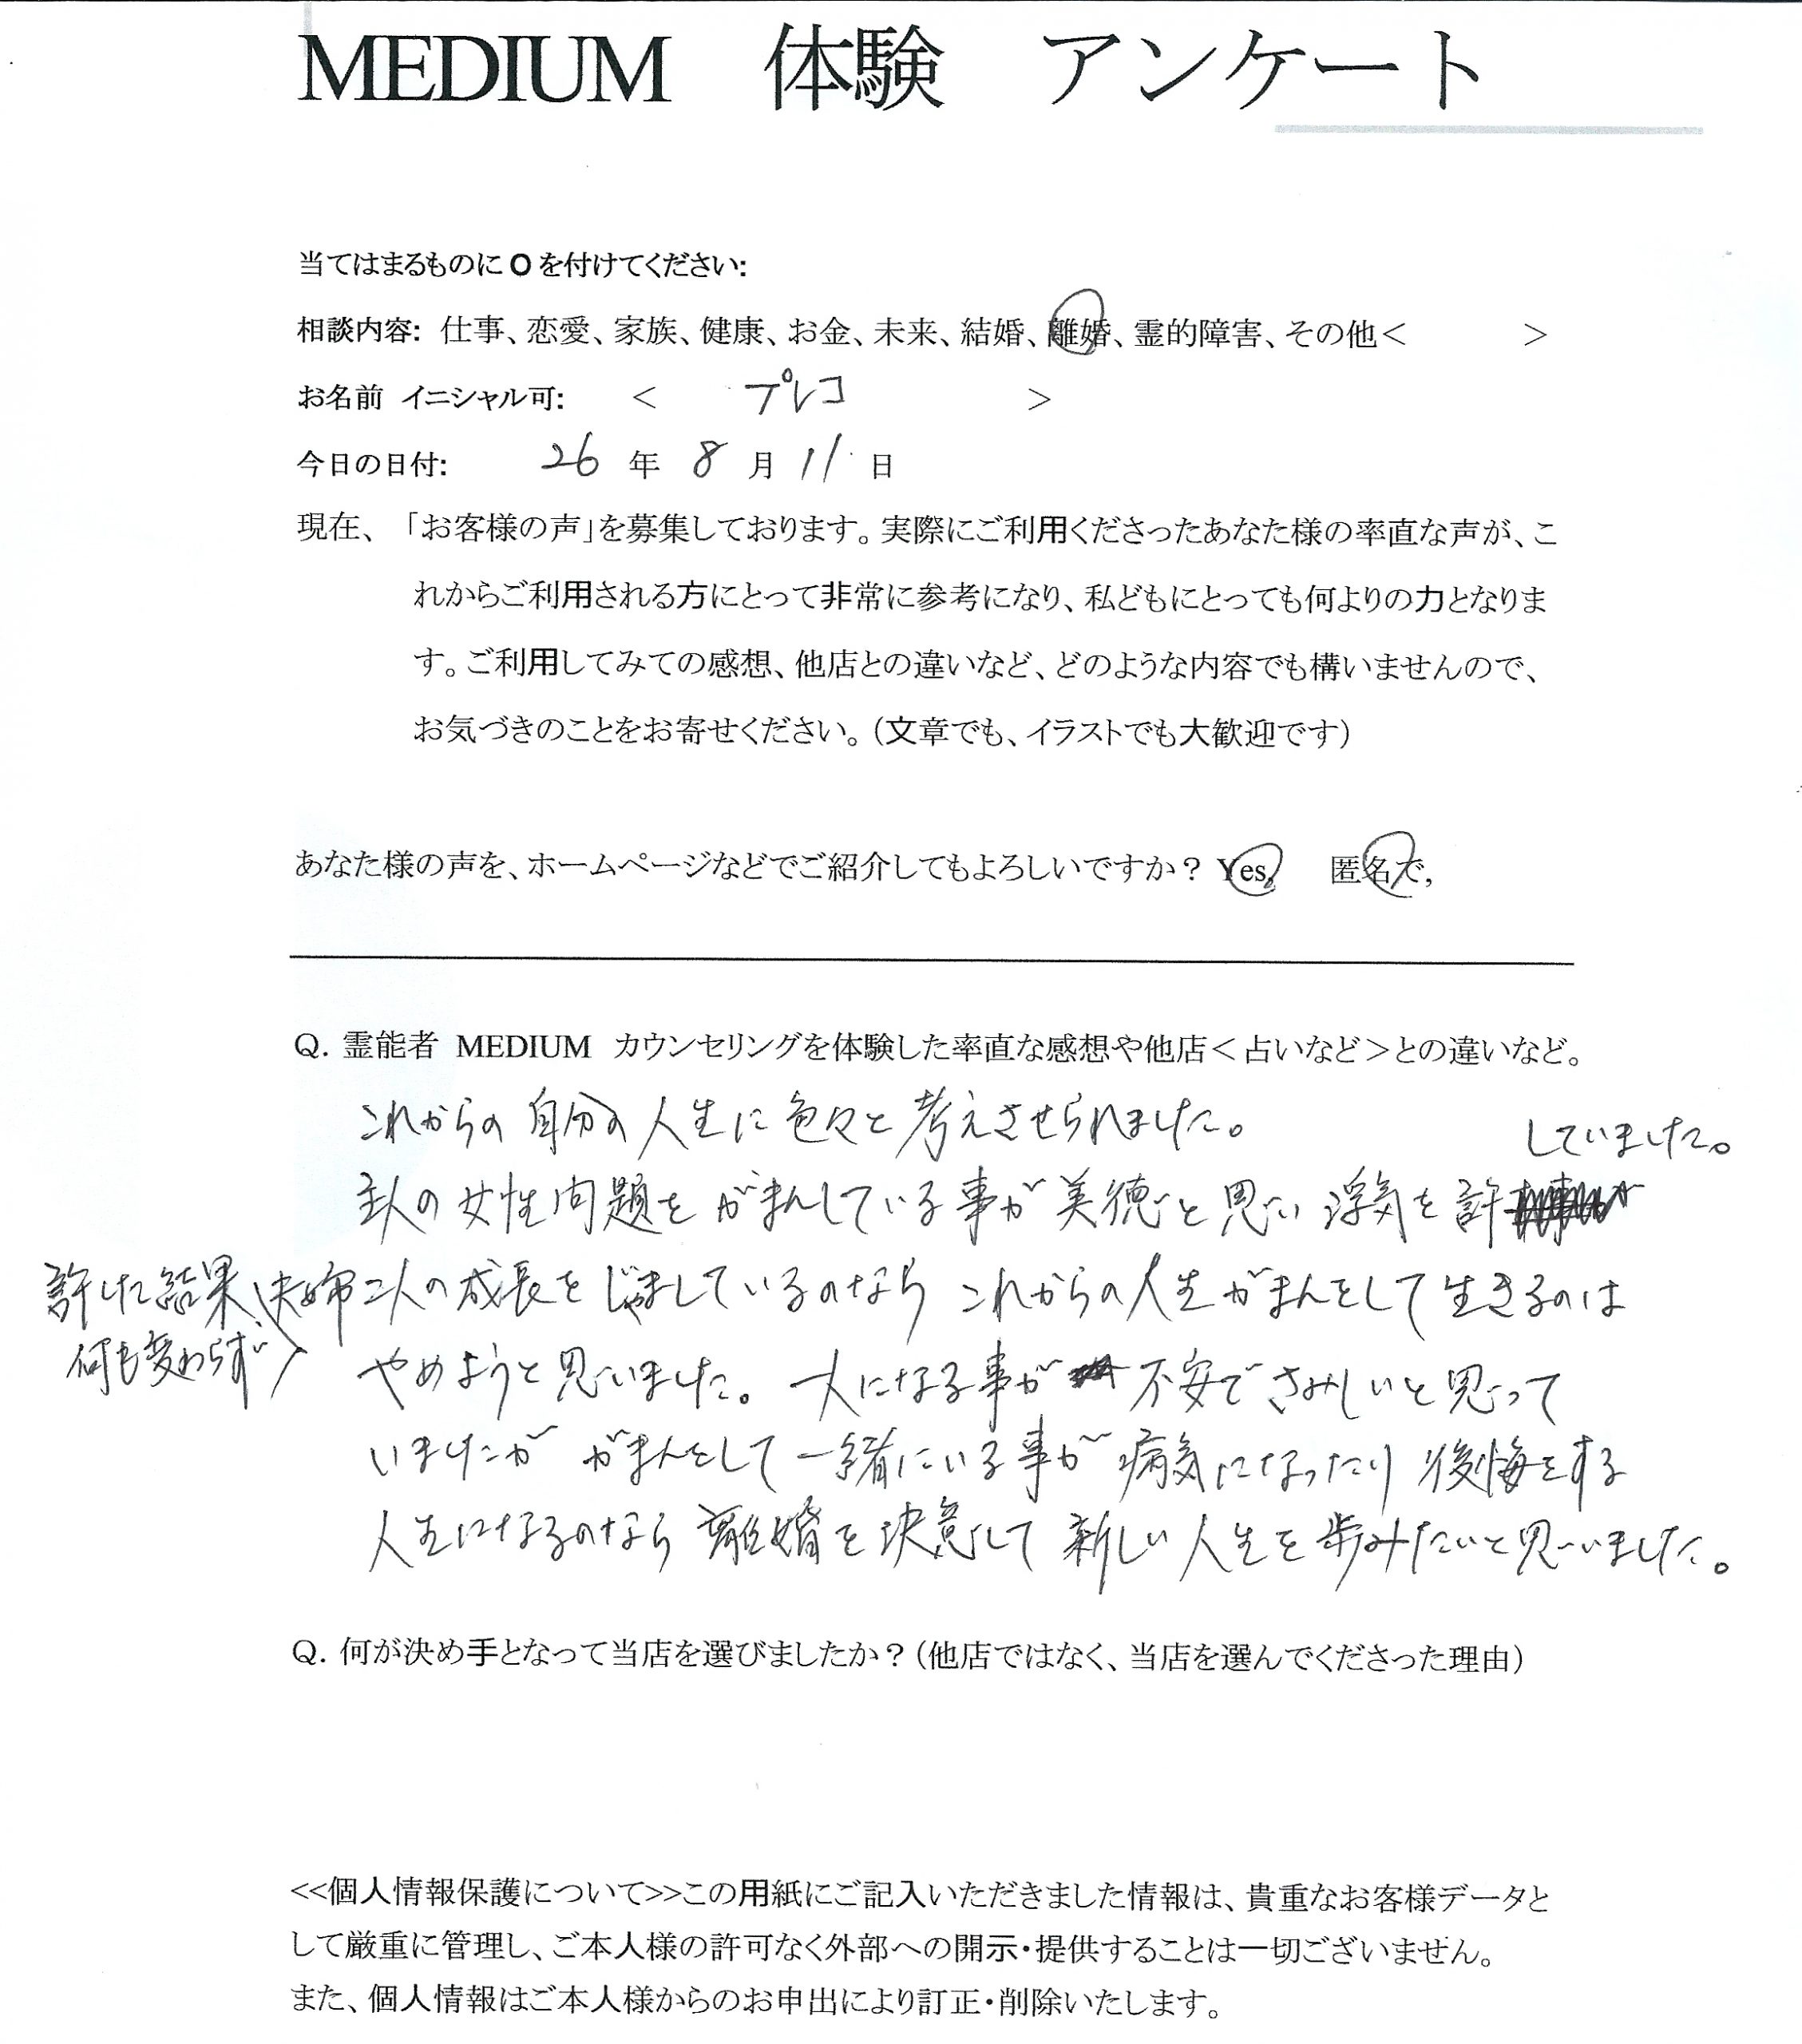 MEDIUM 体験 アンケート
当てはまるものに O を付けてください:
相談内容: 仕事、恋愛、家族、健康、お金、未来、結婚、離婚、霊的障害、その他< >
お名前 イニシャル可: < プレコ >
今日の日付: 26 年 8 月 11 日
現在、「お客様の声」を募集しております。実際にご利用くださったあなた様の率直な声が、こ
れからご利用される方にとって非常に参考になり、私どもにとっても何よりの力となりま
す。ご利用してみての感想、他店との違いなど、どのような内容でも構いませんので、
お気づきのことをお寄せください。(文章でも、イラストでも大歓迎です)
あなた様の声を、ホームページなどでご紹介してもよろしいですか? Yes, 匿名で,
Q. 霊能者 MEDIUM カウンセリングを体験した率直な感想や他店<占いなど>との違いなど。
これからの自分の人生に色々と考えさせられました。
していました。
主人の女性問題をがまんしている事が美徳と思い浮気を許
許した結果
何も変わらず
夫婦二人の成長をじゃましているのなら これからの人生がまんをして生きるのは
やめようと思いました。一人になる事が 不安でさみしいと思って
いましたが がまんをして一緒にいる事が病気になったり後悔をする
人生になるのなら離婚を決意して新しい人生を歩みたいと思いました。
Q. 何が決め手となって当店を選びましたか?(他店ではなく、当店を選んでくださった理由)
<<個人情報保護について>>この用紙にご記入いただきました情報は、貴重なお客様データと
して厳重に管理し、ご本人様の許可なく外部への開示・提供することは一切ございません。
また、個人情報はご本人様からのお申出により訂正・削除いたします。